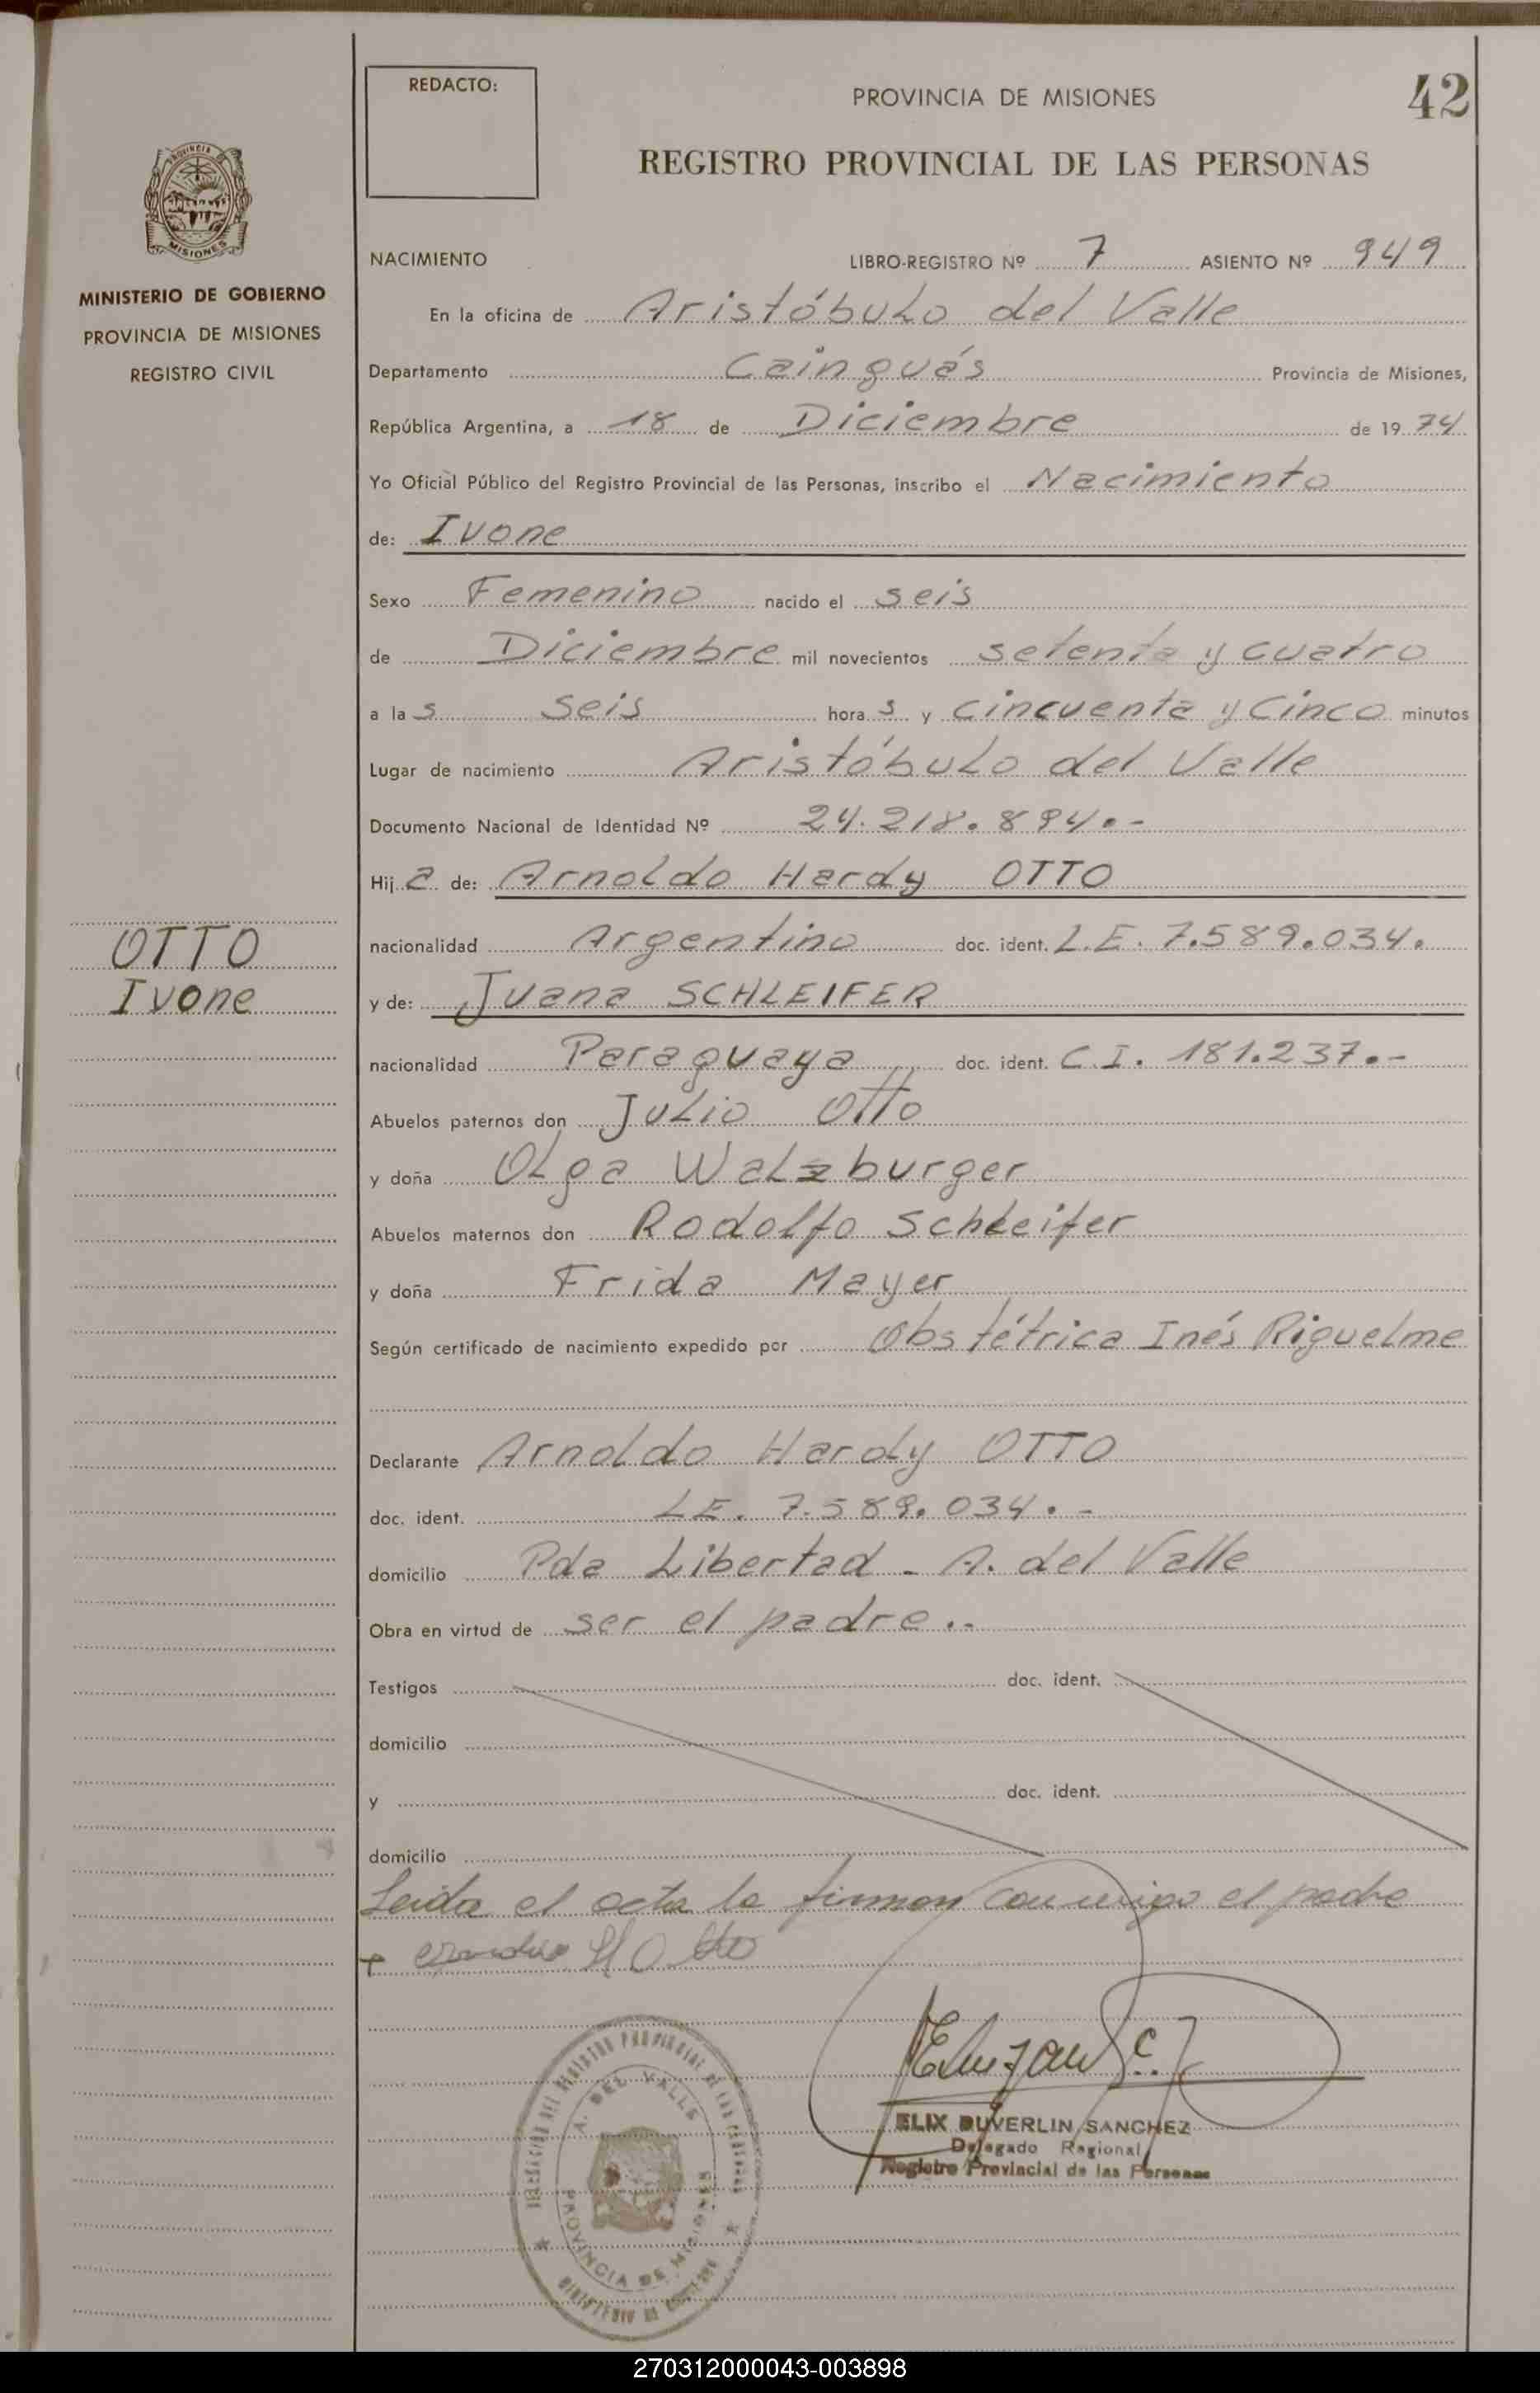 REDACTO:
PROVINCIA DE MISIONES
42
REGISTRO PROVINCIAL DE LAS PERSONAS
MISIONES
MINISTERIO DE GOBIERNO
PROVINCIA DE MISIONES
REGISTRO CIVIL
NACIMIENTO LIBRO-REGISTRO Nº 7 ASIENTO Nº 949
En la oficina de Aristóbulo del Valle
Departamento Cainguás Provincia de Misiones,
República Argentina, a 18 de Diciembre de 1974
Yo Oficial Público del Registro Provincial de las Personas, inscribo el Nacimiento
de: Ivone
Sexo Femenino nacido el seis
de Diciembre mil novecientos setenta y cuatro
a las seis horas y cincuenta y cinco minutos
Lugar de nacimiento Aristóbulo del Valle
Documento Nacional de Identidad Nº 24.218.894.-
Hija de: Arnoldo Hardy OTTO
nacionalidad Argentino doc. ident. L.E. 7.589.034.
y de: Juana SCHLEIFER
nacionalidad Paraguaya doc. ident. C.I. 181.237.-
OTTO
Ivone
Abuelos paternos don Julio Otto
y doña Olga Walzburger
Abuelos maternos don Rodolfo Schleifer
y doña Frida Mayer
Según certificado de nacimiento expedido por Obstétrica Inés Riguelme
Declarante Arnoldo Hardy OTTO
doc. ident. L.E. 7.589.034.-
domicilio Pda Libertad - A. del Valle
Obra en virtud de ser el padre.-
Testigos doc. ident.
domicilio
y doc. ident.
domicilio
Leida el acta la firman conmigo el padre
ELIX DUVERLIN SANCHEZ
Delegado Regional
Registro Provincial de las Personas
DELEGACION DEL REGISTRO PROVINCIAL DE LAS PERSONAS
A. DEL VALLE
PROVINCIA DE MISIONES
MINISTERIO DE GOBIERNO
270312000043-003898